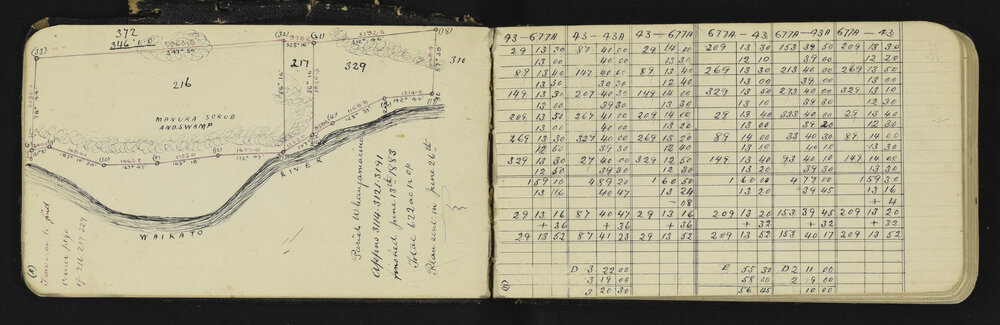 372
346
(33)
(32)
(31)
(18)
216
217
329
310
MANUKA SCRUB
ANDSWAMP
RIVER
WAIKATO
Parish Whangamarino
Appns 3114-3121-3191
finished June 13th 1883
Total 622 ac
Plan sent in June 26th
Traverse to find
of 216 217 329
43-677A 43-43A 43-677A 677A-43 677A-43A 677A-43
29 13 30 87 41 00 29 14 00 209 13 30 153 39 50 209 13 30
13 00 40 00 13 30 12 10 39 00 12 20
89 13 40 147 40 00 89 13 40 269 13 30 213 40 00 269 13 50
12 30 39 30 12 40 13 00 39 00 13 00
149 13 30 207 40 30 149 14 00 329 13 50 273 40 00 329 13 10
13 00 39 30 13 30 13 10 39 30 12 30
209 13 50 267 41 00 209 14 00 29 13 40 333 40 00 29 13 40
13 00 40 00 13 20 13 00 39 20 12 30
269 13 30 327 40 30 269 13 20 89 14 00 33 40 30 89 14 00
12 50 39 30 12 40 13 10 40 10 13 30
329 13 30 27 40 00 329 12 50 149 13 40 93 40 10 149 14 00
12 50 39 30 12 30 13 20 39 50 13 30
159 10 489 20 160 50 160 00 477 00 159 30
13 16 40 47 13 24 13 20 39 45 13 16
-08 +4
29 13 16 87 40 47 29 13 16 209 13 20 153 39 45 209 13 20
+36 +36 +36 +32 +32 +32
29 13 52 87 41 23 29 13 52 209 13 52 153 40 17 209 13 52
D 3 22 00 E 55 30 D 2 11 00
3 19 00 58 00 2 9 00
3 20 30 56 45 10 00